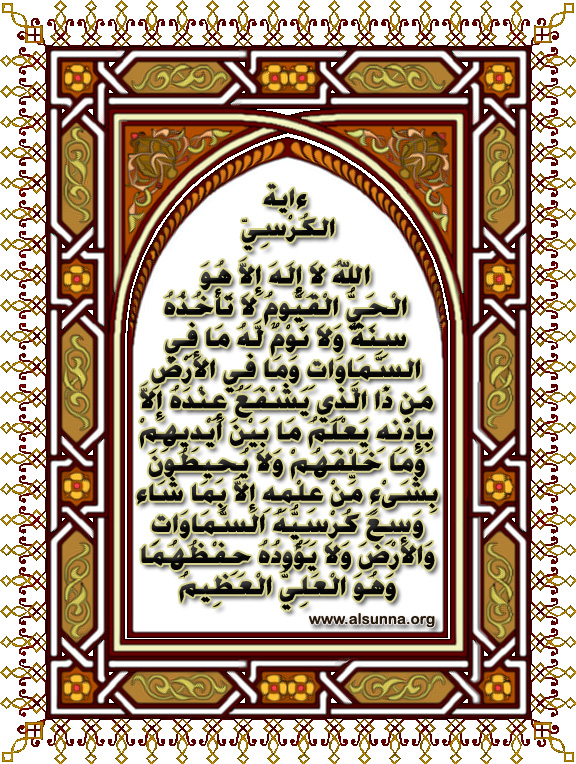 ءاية
الكُرْسِيّ
اللهُ لاَ إِلهَ إِلاَّ هُوَ
الْحَيُّ الْقَيُّومُ لاَ تَأْخُذُهُ
سِنَةٌ وَلاَ نَوْمٌ لَّهُ مَا فِي
السَّمَاوَات وَمَا فِي الأَرْضِ
مَن ذَا الَّذِي يَشْفَعُ عِنْدَهُ إِلاَّ
بِإِذْنِه يَعْلَمُ مَا بَيْنَ أَيْدِيهِمْ
وَمَا خَلْفَهُمْ وَلاَ يُحِيطُونَ
بِشَىْءٍ مِّنْ عِلْمِه إِلاَّ بِمَا شَاء
وَسِعَ كُرْسِيُّهُ السَّمَاوَات
وَالأَرْضَ وَلاَ يَؤُودُهُ حِفْظُهُمَا
وَهُوَ الْعَلِيُّ الْعَظِيمُ
www.alsunna.org